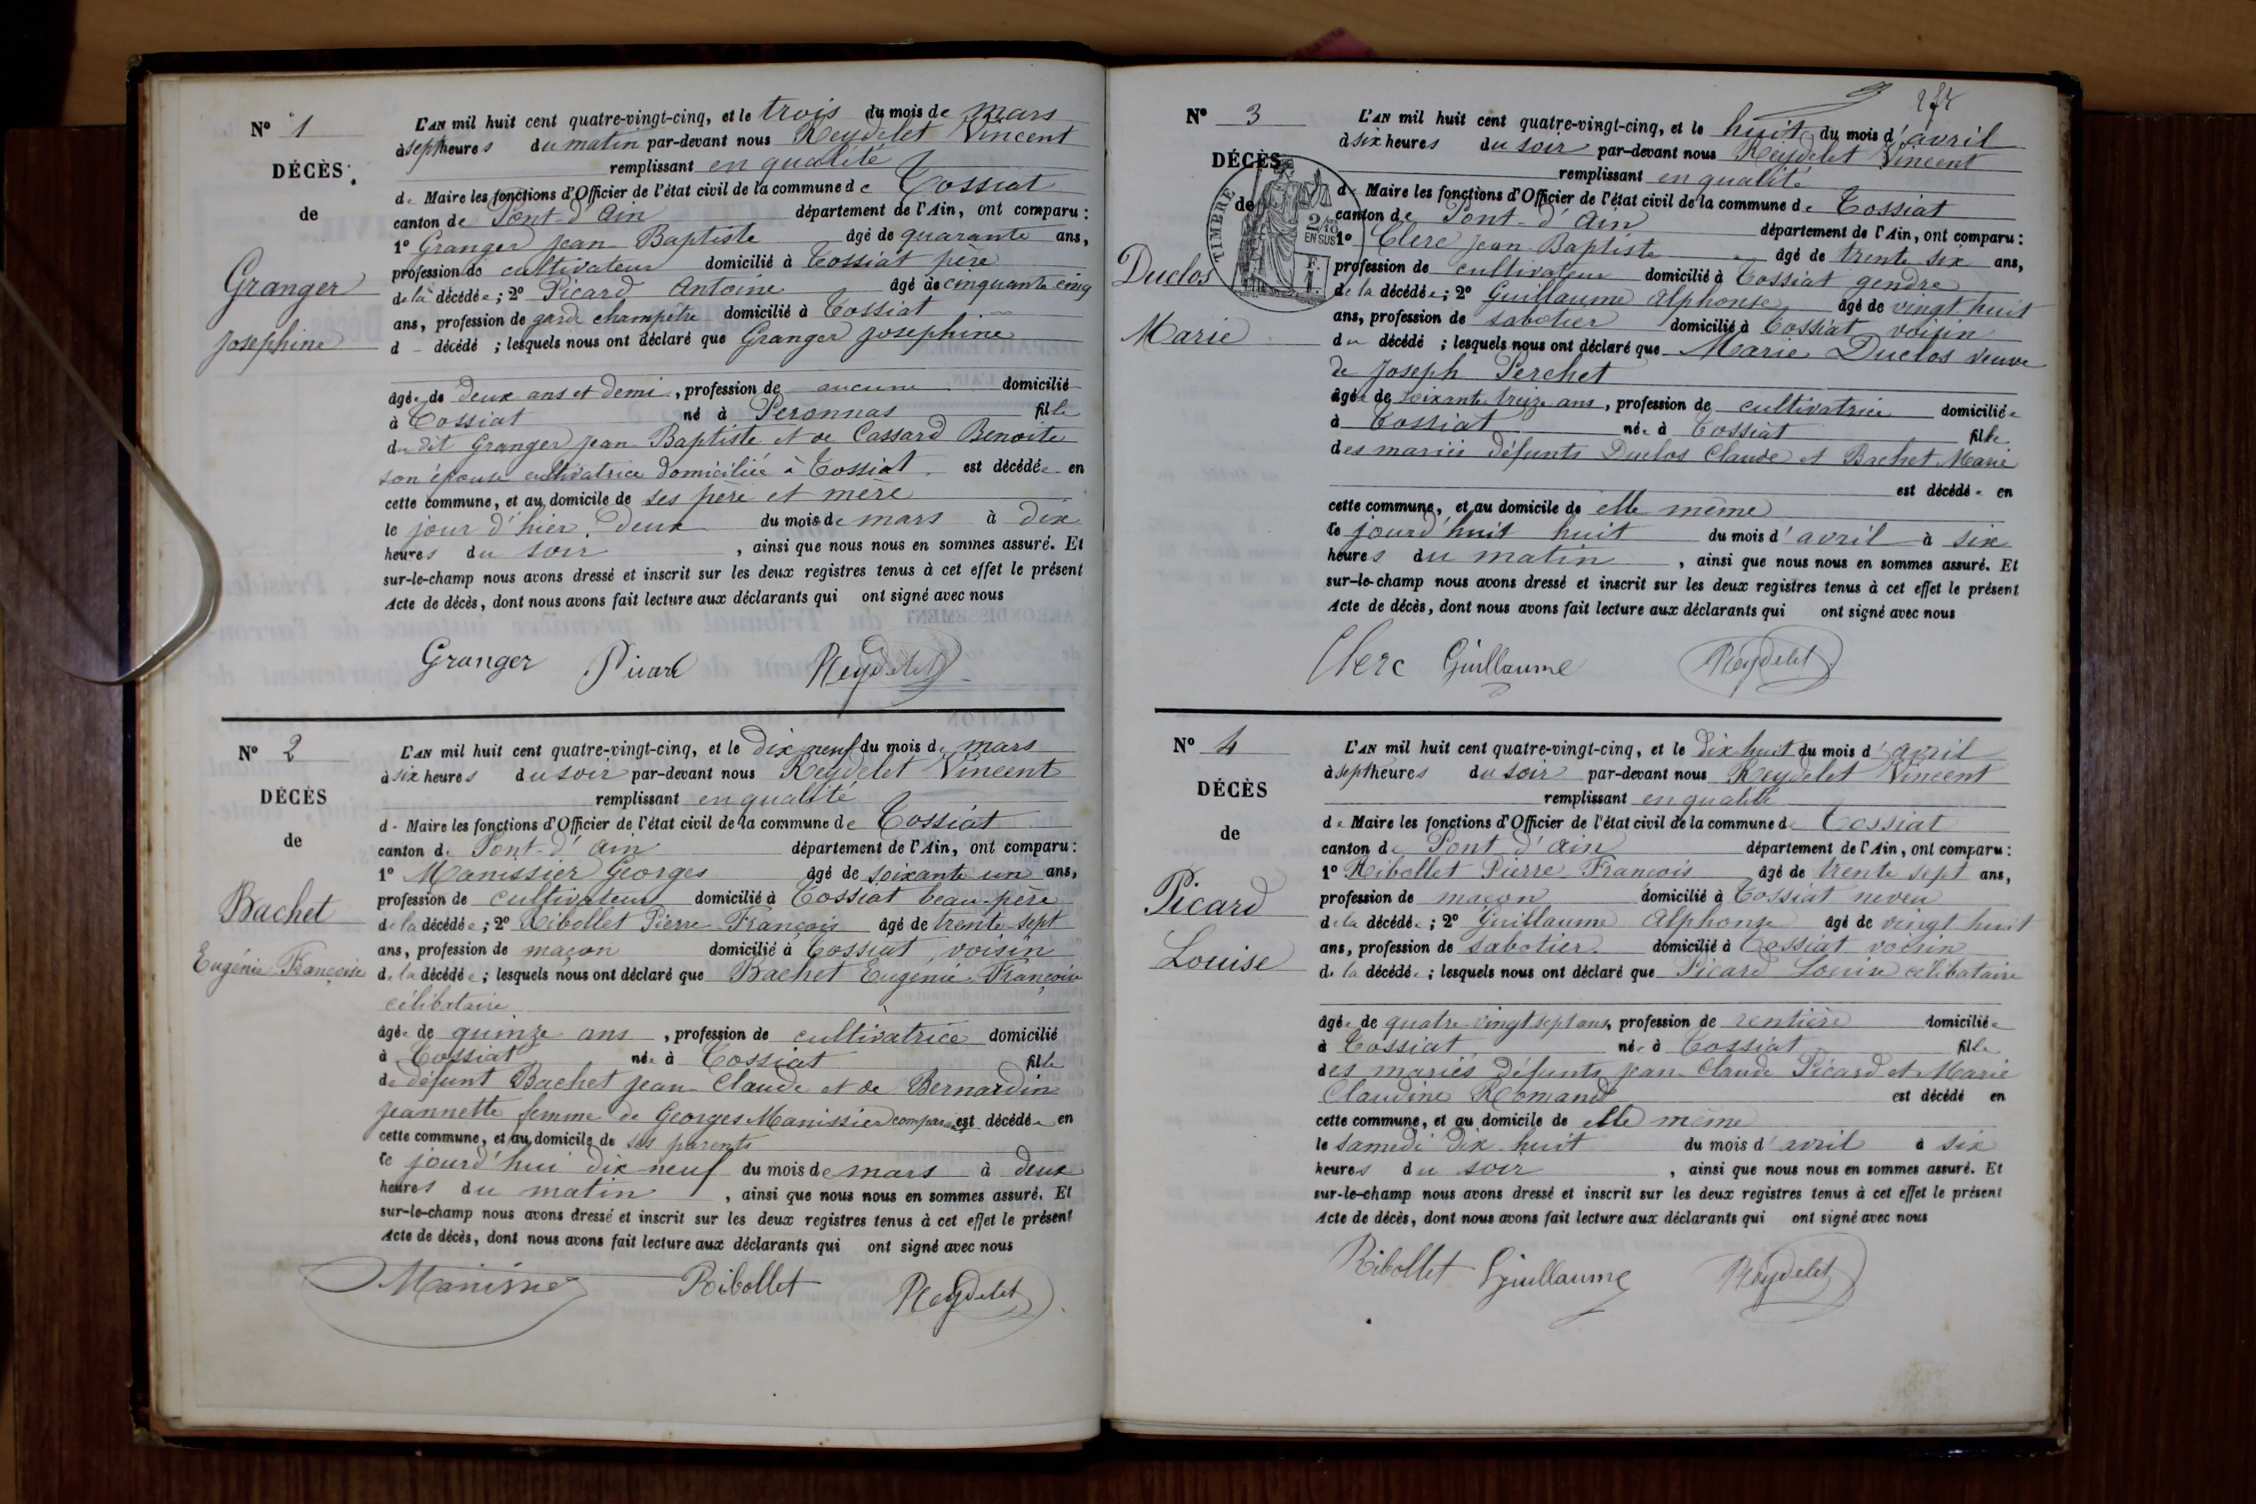 N° 1
DÉCÈS
de
Granger
Josephine
L'AN mil huit cent quatre-vingt-cinq, et le trois du mois de mars
à sept heures du matin par-devant nous Reydelet Vincent
remplissant en qualité
de Maire les fonctions d'Officier de l'état civil de la commune de Tossiat
canton de Pont-d'Ain département de l'Ain, ont comparu :
1° Granger Jean Baptiste âgé de quarante ans,
profession de cultivateur domicilié à Tossiat père
de la décédée ; 2° Picard Antoine âgé de cinquante cinq
ans, profession de garde champêtre domicilié à Tossiat
d décédé ; lesquels nous ont déclaré que Granger Josephine
âgée de deux ans et demi, profession de aucune domicilié
à Tossiat né à Peronnas fille
du dit Granger Jean Baptiste et de Cassard Benoite
son épouse cultivatrice domiciliée à Tossiat est décédée en
cette commune, et au domicile de ses père et mère
le jour d'hier deux du mois de mars à dix
heures du soir, ainsi que nous nous en sommes assuré. Et
sur-le-champ nous avons dressé et inscrit sur les deux registres tenus à cet effet le présent
Acte de décès, dont nous avons fait lecture aux déclarants qui ont signé avec nous
Granger Picard Reydelet
N° 2
DÉCÈS
de
Bachet
Eugénie Françoise
L'AN mil huit cent quatre-vingt-cinq, et le dix neuf du mois de mars
à six heures du soir par-devant nous Reydelet Vincent
remplissant en qualité
de Maire les fonctions d'Officier de l'état civil de la commune de Tossiat
canton de Pont-d'Ain département de l'Ain, ont comparu :
1° Manissier Georges âgé de soixante un ans,
profession de cultivateur domicilié à Tossiat beau-père
de la décédée ; 2° Ribollet Pierre François âgé de trente sept
ans, profession de maçon domicilié à Tossiat, voisin
de la décédée ; lesquels nous ont déclaré que Bachet Eugénie Françoise
célibataire
âgée de quinze ans, profession de cultivatrice domicilié
à Tossiat née à Tossiat fille
de défunt Bachet Jean Claude et de Bernardin
Jeannette femme de Georges Manissier comparant est décédée en
cette commune, et au domicile de ses parents
le jourd'hui dix neuf du mois de mars à deux
heures du matin, ainsi que nous nous en sommes assuré. Et
sur-le-champ nous avons dressé et inscrit sur les deux registres tenus à cet effet le présent
Acte de décès, dont nous avons fait lecture aux déclarants qui ont signé avec nous
Manissier Ribollet Reydelet
N° 3
DÉCÈS
de
Duclos
Marie
TIMBRE
2/10
EN SUS
L'AN mil huit cent quatre-vingt-cinq, et le huit du mois d'avril
à six heures du soir par-devant nous Reydelet Vincent
remplissant en qualité
de Maire les fonctions d'Officier de l'état civil de la commune de Tossiat
canton de Pont-d'Ain département de l'Ain, ont comparu :
1° Clerc Jean Baptiste âgé de trente six ans,
profession de cultivateur domicilié à Tossiat gendre
de la décédée ; 2° Guillaume Alphonse âgé de vingt huit
ans, profession de sabotier domicilié à Tossiat voisin
du décédé ; lesquels nous ont déclaré que Marie Duclos veuve
de Joseph Perchet
âgée de soixante treize ans, profession de cultivatrice domiciliée
à Tossiat née à Tossiat fille
des mariés défunts Duclos Claude et Bachet Marie
est décédée en
cette commune, et au domicile de elle même
le jourd'huit huit du mois d'avril à six
heures du matin, ainsi que nous nous en sommes assuré. Et
sur-le-champ nous avons dressé et inscrit sur les deux registres tenus à cet effet le présent
Acte de décès, dont nous avons fait lecture aux déclarants qui ont signé avec nous
Clerc Guillaume Reydelet
N° 4
DÉCÈS
de
Picard
Louise
L'AN mil huit cent quatre-vingt-cinq, et le dix huit du mois d'avril
à sept heures du soir par-devant nous Reydelet Vincent
remplissant en qualité
de Maire les fonctions d'Officier de l'état civil de la commune de Tossiat
canton de Pont-d'Ain département de l'Ain, ont comparu :
1° Ribollet Pierre François âgé de trente sept ans,
profession de maçon domicilié à Tossiat neveu
de la décédée ; 2° Guillaume Alphonse âgé de vingt huit
ans, profession de sabotier domicilié à Tossiat voisin
de la décédée ; lesquels nous ont déclaré que Picard Louise célibataire
âgée de quatre vingt sept ans, profession de rentière domiciliée
à Tossiat née à Tossiat fille
des mariés défunts Jean Claude Picard et Marie
Claudine Romand est décédé en
cette commune, et au domicile de elle même
le samedi dix huit du mois d'avril à six
heures du soir, ainsi que nous nous en sommes assuré. Et
sur-le-champ nous avons dressé et inscrit sur les deux registres tenus à cet effet le présent
Acte de décès, dont nous avons fait lecture aux déclarants qui ont signé avec nous
Ribollet Guillaume Reydelet